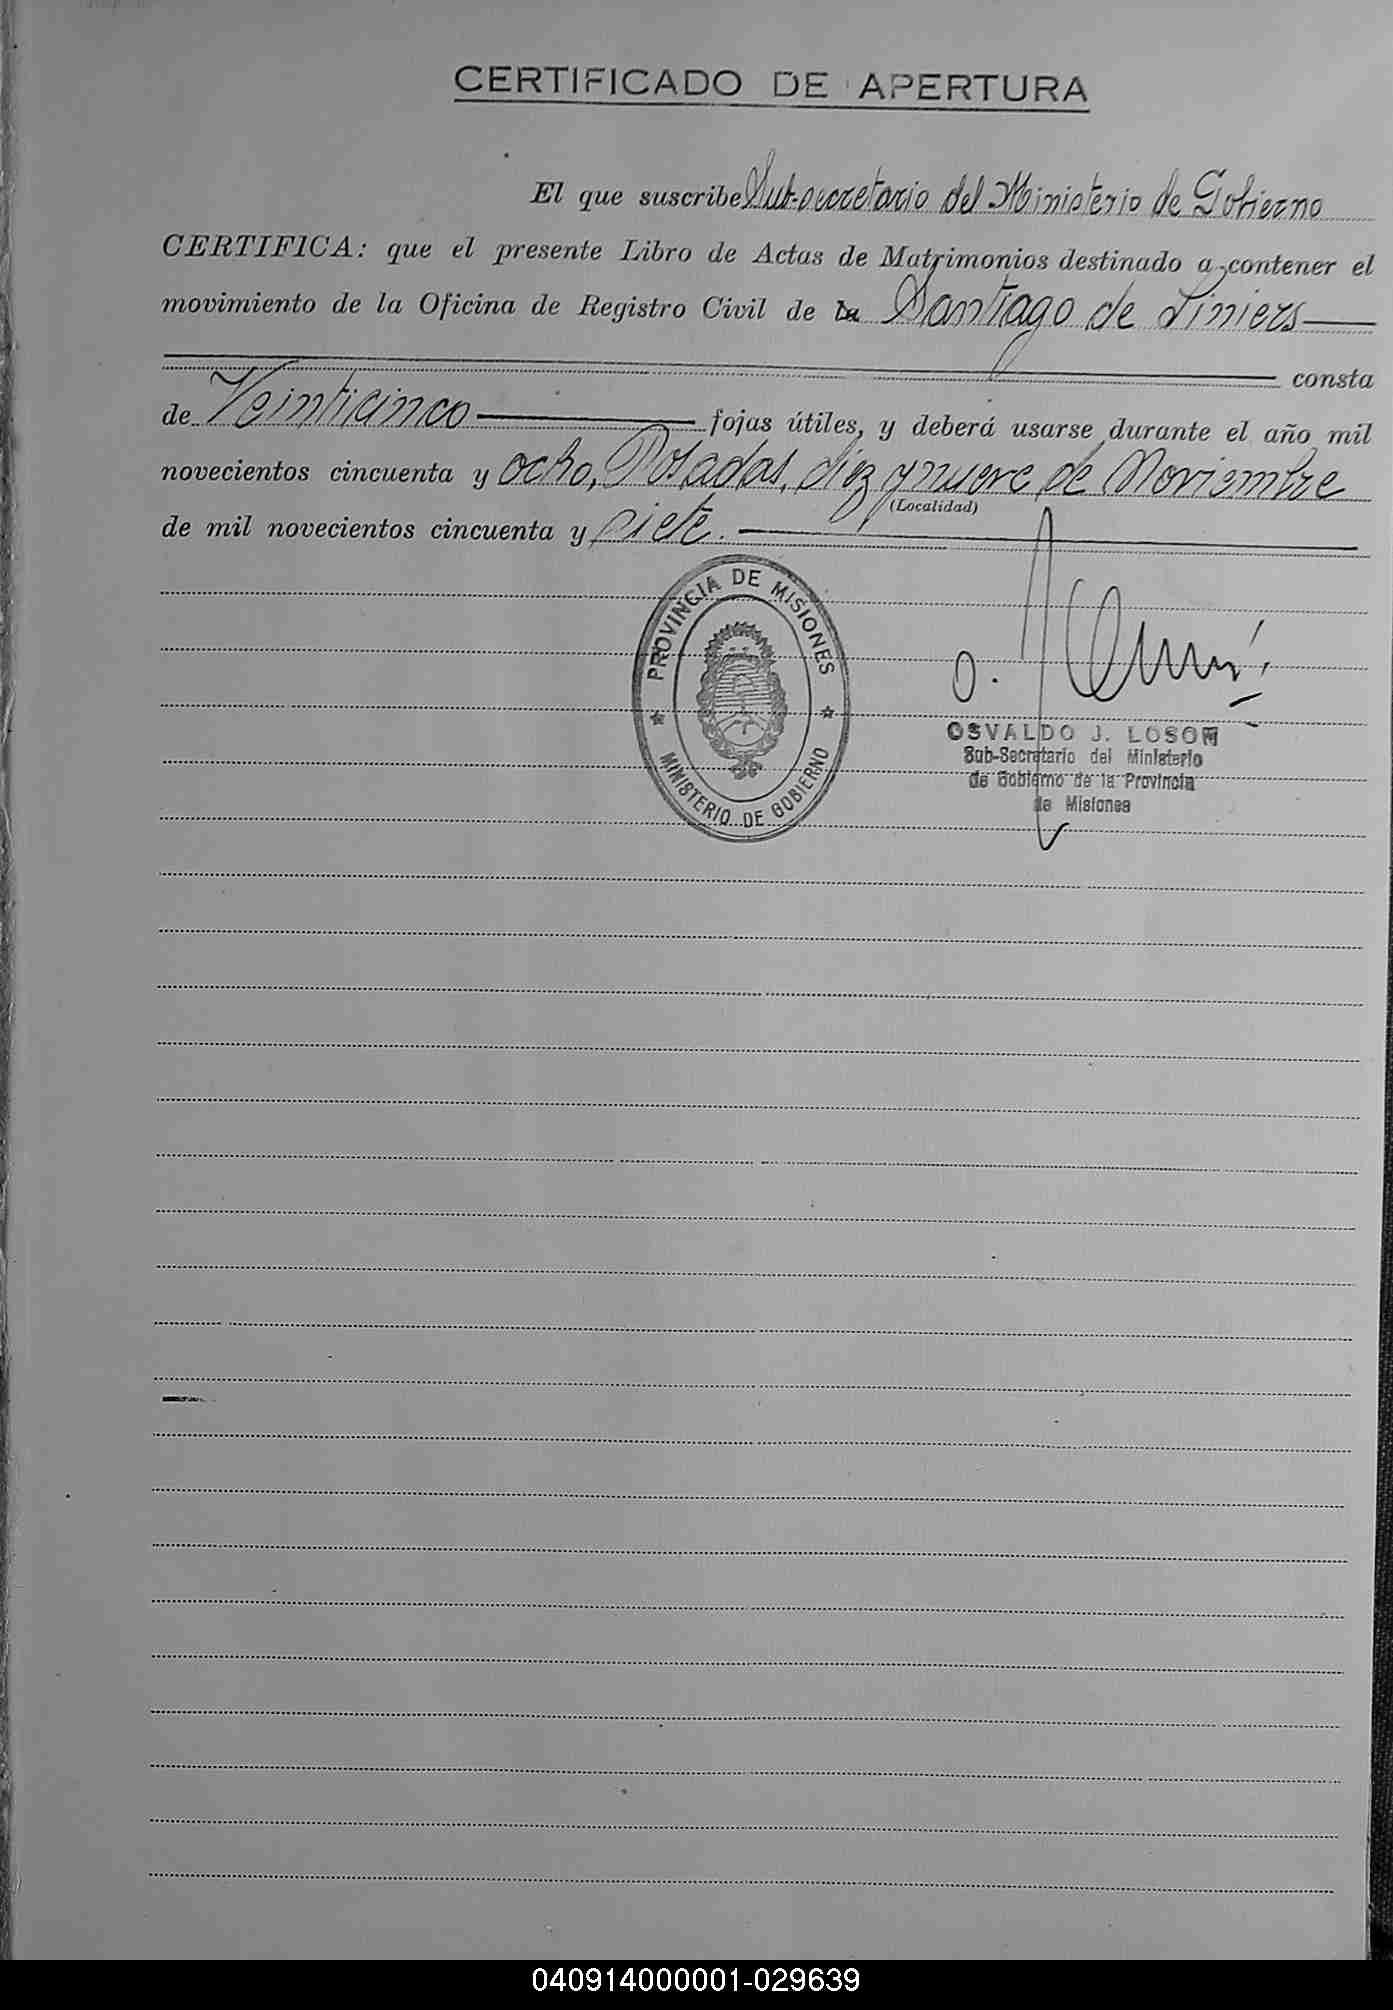 CERTIFICADO DE APERTURA
El que suscribe Sub-secretario del Ministerio de Gobierno
CERTIFICA: que el presente Libro de Actas de Matrimonios destinado a contener el
movimiento de la Oficina de Registro Civil de la Santiago de Liniers
consta
de Veinticinco fojas útiles, y deberá usarse durante el año mil
novecientos cincuenta y ocho, Posadas, diez y nueve de Noviembre
(Localidad)
de mil novecientos cincuenta y siete.
PROVINCIA DE MISIONES
MINISTERIO DE GOBIERNO
OSVALDO J. LOSON
Sub-Secretario del Ministerio
de Gobierno de la Provincia
de Misiones
040914000001-029639